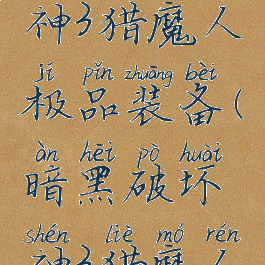 神3猎魔人
jí pǐn zhuāng bèi
极品装备(
àn hēi pò huài
暗黑破坏
shén liè mó rén
神3猎魔人